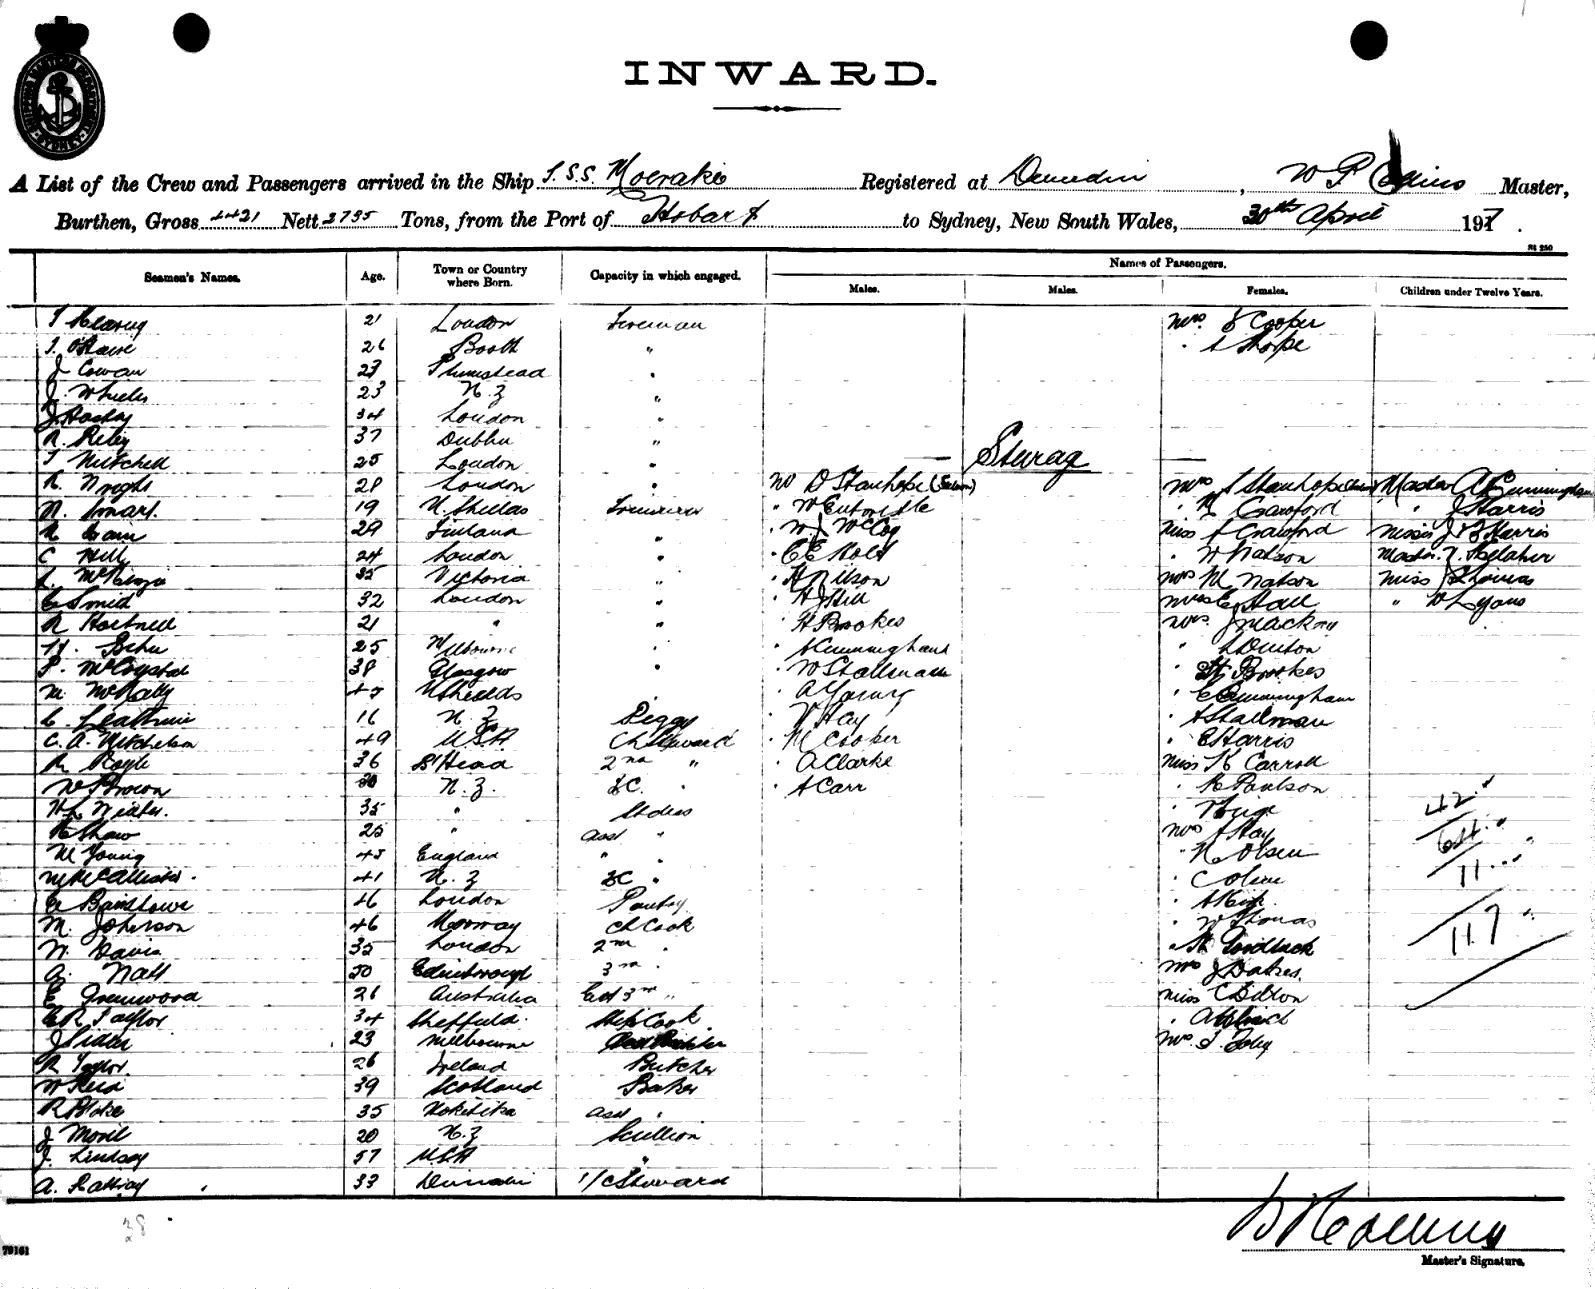 INWARD.
A List of the Crew and Passengers arrived in the Ship T.S.S. Moeraki Registered at Dunedin, W P Collins Master,
Burthen, Gross 4421 Nett 2735 Tons, from the Port of Hobart to Sydney, New South Wales, 30th April 1917.
St 250
Seamen's Names. Age. Town or Country where Born. Capacity in which engaged. Names of Passengers.
Males. Males. Females. Children under Twelve Years.
21 London Fireman Mrs. Cooper
26 Booth " " Thorpe
J Cowan 23 Plumstead "
J. Wheeler 23 N.Z "
34 London "
R. Riley 37 Dublin "
T Mitchell 25 London " Steerage
R. Wright 28 London " Mr D Stanhope (Saloon) Mrs Stanhope Master A Cunningham
N. Smart. 19 N. Shields Trimmer " W Entwistle " Crawford " J Harris
29 Finland " " W J McCoy Miss Crawford Misses J Harris
C Hill 24 London " " C E Holt " W Watson Master
35 Victoria " " H Wilson Mrs M Watson Miss Thomas
32 London " " H J Hill Mrs E Hall " Lyons
R Hartnell 21 " " " H Brookes Mrs. J Mackay
25 Melbourne " " A Cunningham " Denton
P. McCrystal 38 Glasgow " " W Stallman " H Brookes
M. McNally 45 N Shields " " A Young " E Cunningham
16 N. Z Peggy " V Hay " A Stallman
C. A. Mitchelson 49 USA Ch Steward " M Cooper " E Harris
R Royle 36 B'Head 2nd " " A Clarke Miss K Carroll
W Brown 30 N.Z. FC. " " A Carr " Paulson
35 " Stdess
R Shaw 25 " Asst " Mrs Hay
M Young 45 England " " " N Olsen
W McCallister. 41 N.Z FC " " C Olsen
E Bairstowe 46 London Pantry
M. Johnson 46 Norway Ch Cook " W Thomas
W. Davis 35 London 2nd "
G. Nall 50 Edinborough 3rd " Mrs J Oakes.
E Greenwood 26 Australia Ext 3rd " Miss C Dillon
C R Taylor 34 Sheffield. Ships Cook.
23 Melbourne Mrs. T. Foley
R Taylor. 26 Ireland Butcher
W Reid 39 Scotland Baker
R Blake 35 Hokitika Asst "
J Movil 20 N.Z Scullion
J. Lindsay 57 U.S.A "
A. Rattray 33 Dunedin 1/c Steward
42
64
11
117
38
W P Collins
79161
Master's Signature.